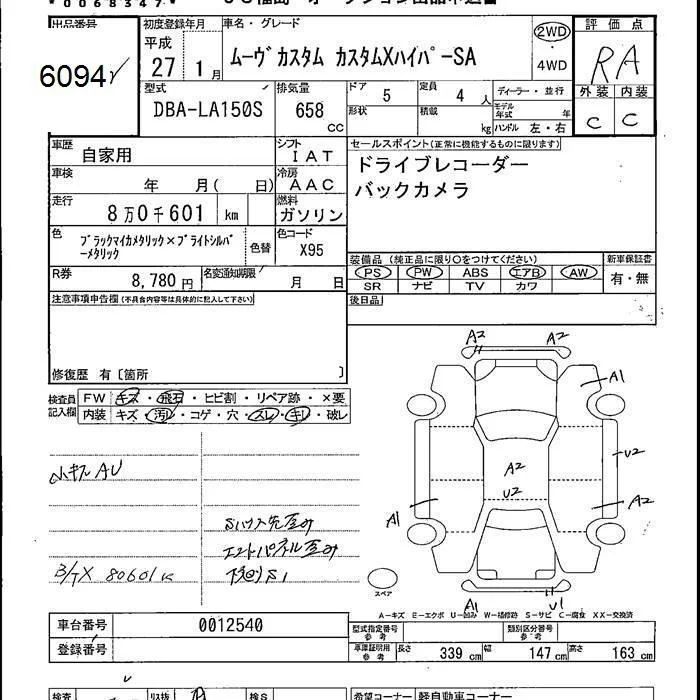 0068347
出品番号
6094
初度登録年月
平成
27 1月
車名・グレード
ムーヴカスタム カスタムXハイパーSA
2WD
・
4WD
評価点
RA
外装 内装
C C
型式
DBA-LA150S
排気量
658
cc
ドア 5
定員 4人
ディーラー・並行
形状
積載 kg
モデル年式 年
ハンドル 左・右
車歴
自家用
シフト
IAT
車検
年 月( 日)
冷房
AAC
走行
8万0千601 km
燃料
ガソリン
色
ブラックマイカメタリック×ブライトシルバーメタリック
色替
色コード
X95
R券
8,780円
名変通知期限
月 日
セールスポイント(正常に機能するものに限ります)
ドライブレコーダー
バックカメラ
装備品(純正品に限り○をつけてください)
新車保証書
PS PW ABS エアB AW
有・無
SR ナビ TV カワ
後日品
注意事項申告欄(不具合内容等は具体的に記入して下さい)
修復歴 有〔箇所 〕
検査員
記入欄
FW キズ・飛石・ヒビ割・リペア跡・×要
内装 キズ・汚レ・コゲ・穴・スレ・キレ・破レ
小キズ AU
Sハウス先歪み
エンドパネル歪み
下回りS1
B/TX 80601K
A2 A2
A1
A2
U2
U2
A1
A2
A1 U1
スペア
A-キズ E-エクボ U-凹み W-補修跡 S-サビ C-腐食 XX-交換済
車台番号
0012540
登録番号
型式指定番号
参考
類別区分番号
参考
車庫証明用
参考
長さ 339cm
幅 147cm
高さ 163cm
検査
リス抜
検S
希望コーナー
軽自動車コーナー